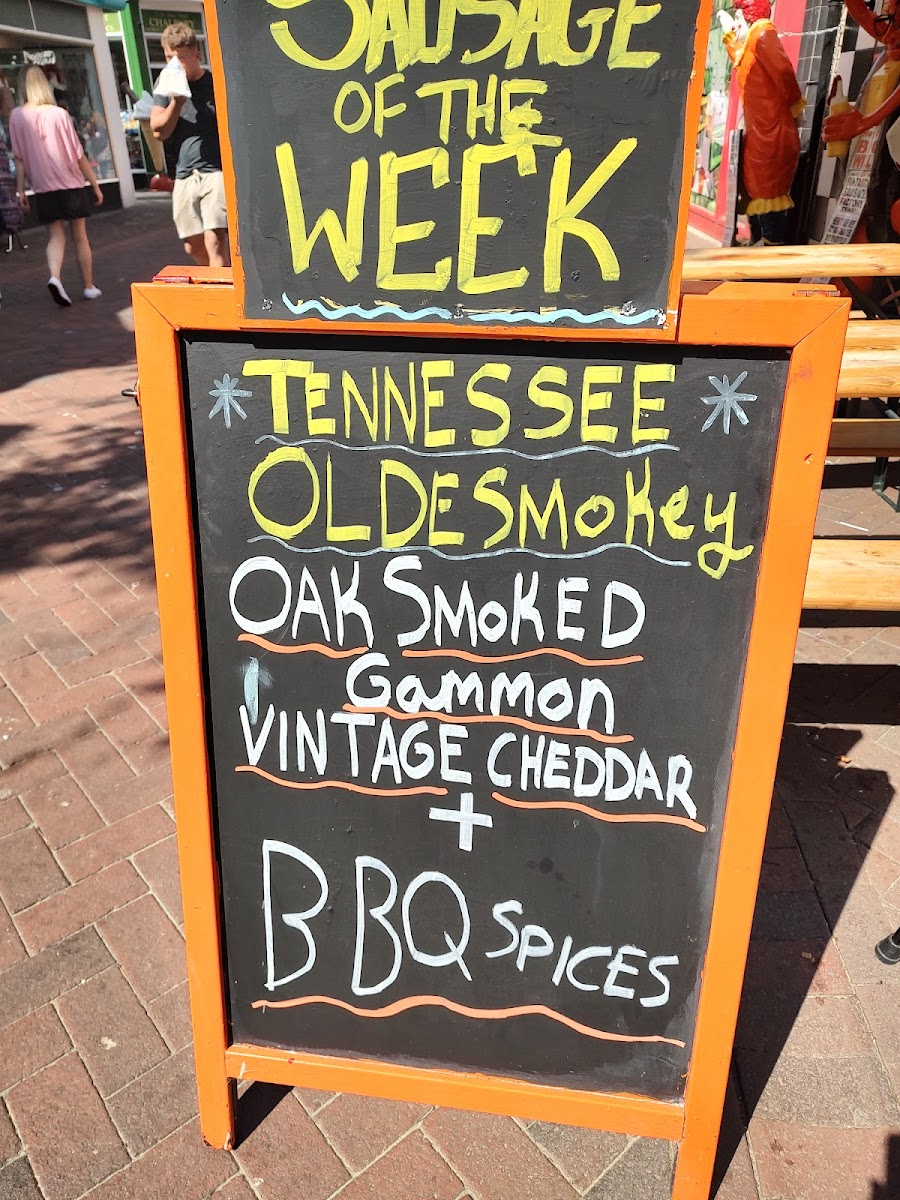 SAUSAGE
OF THE
WEEK
TENNESSEE
OLDE SMOKEY
OAK SMOKED
Gammon
VINTAGE CHEDDAR
+
BBQ SPICES